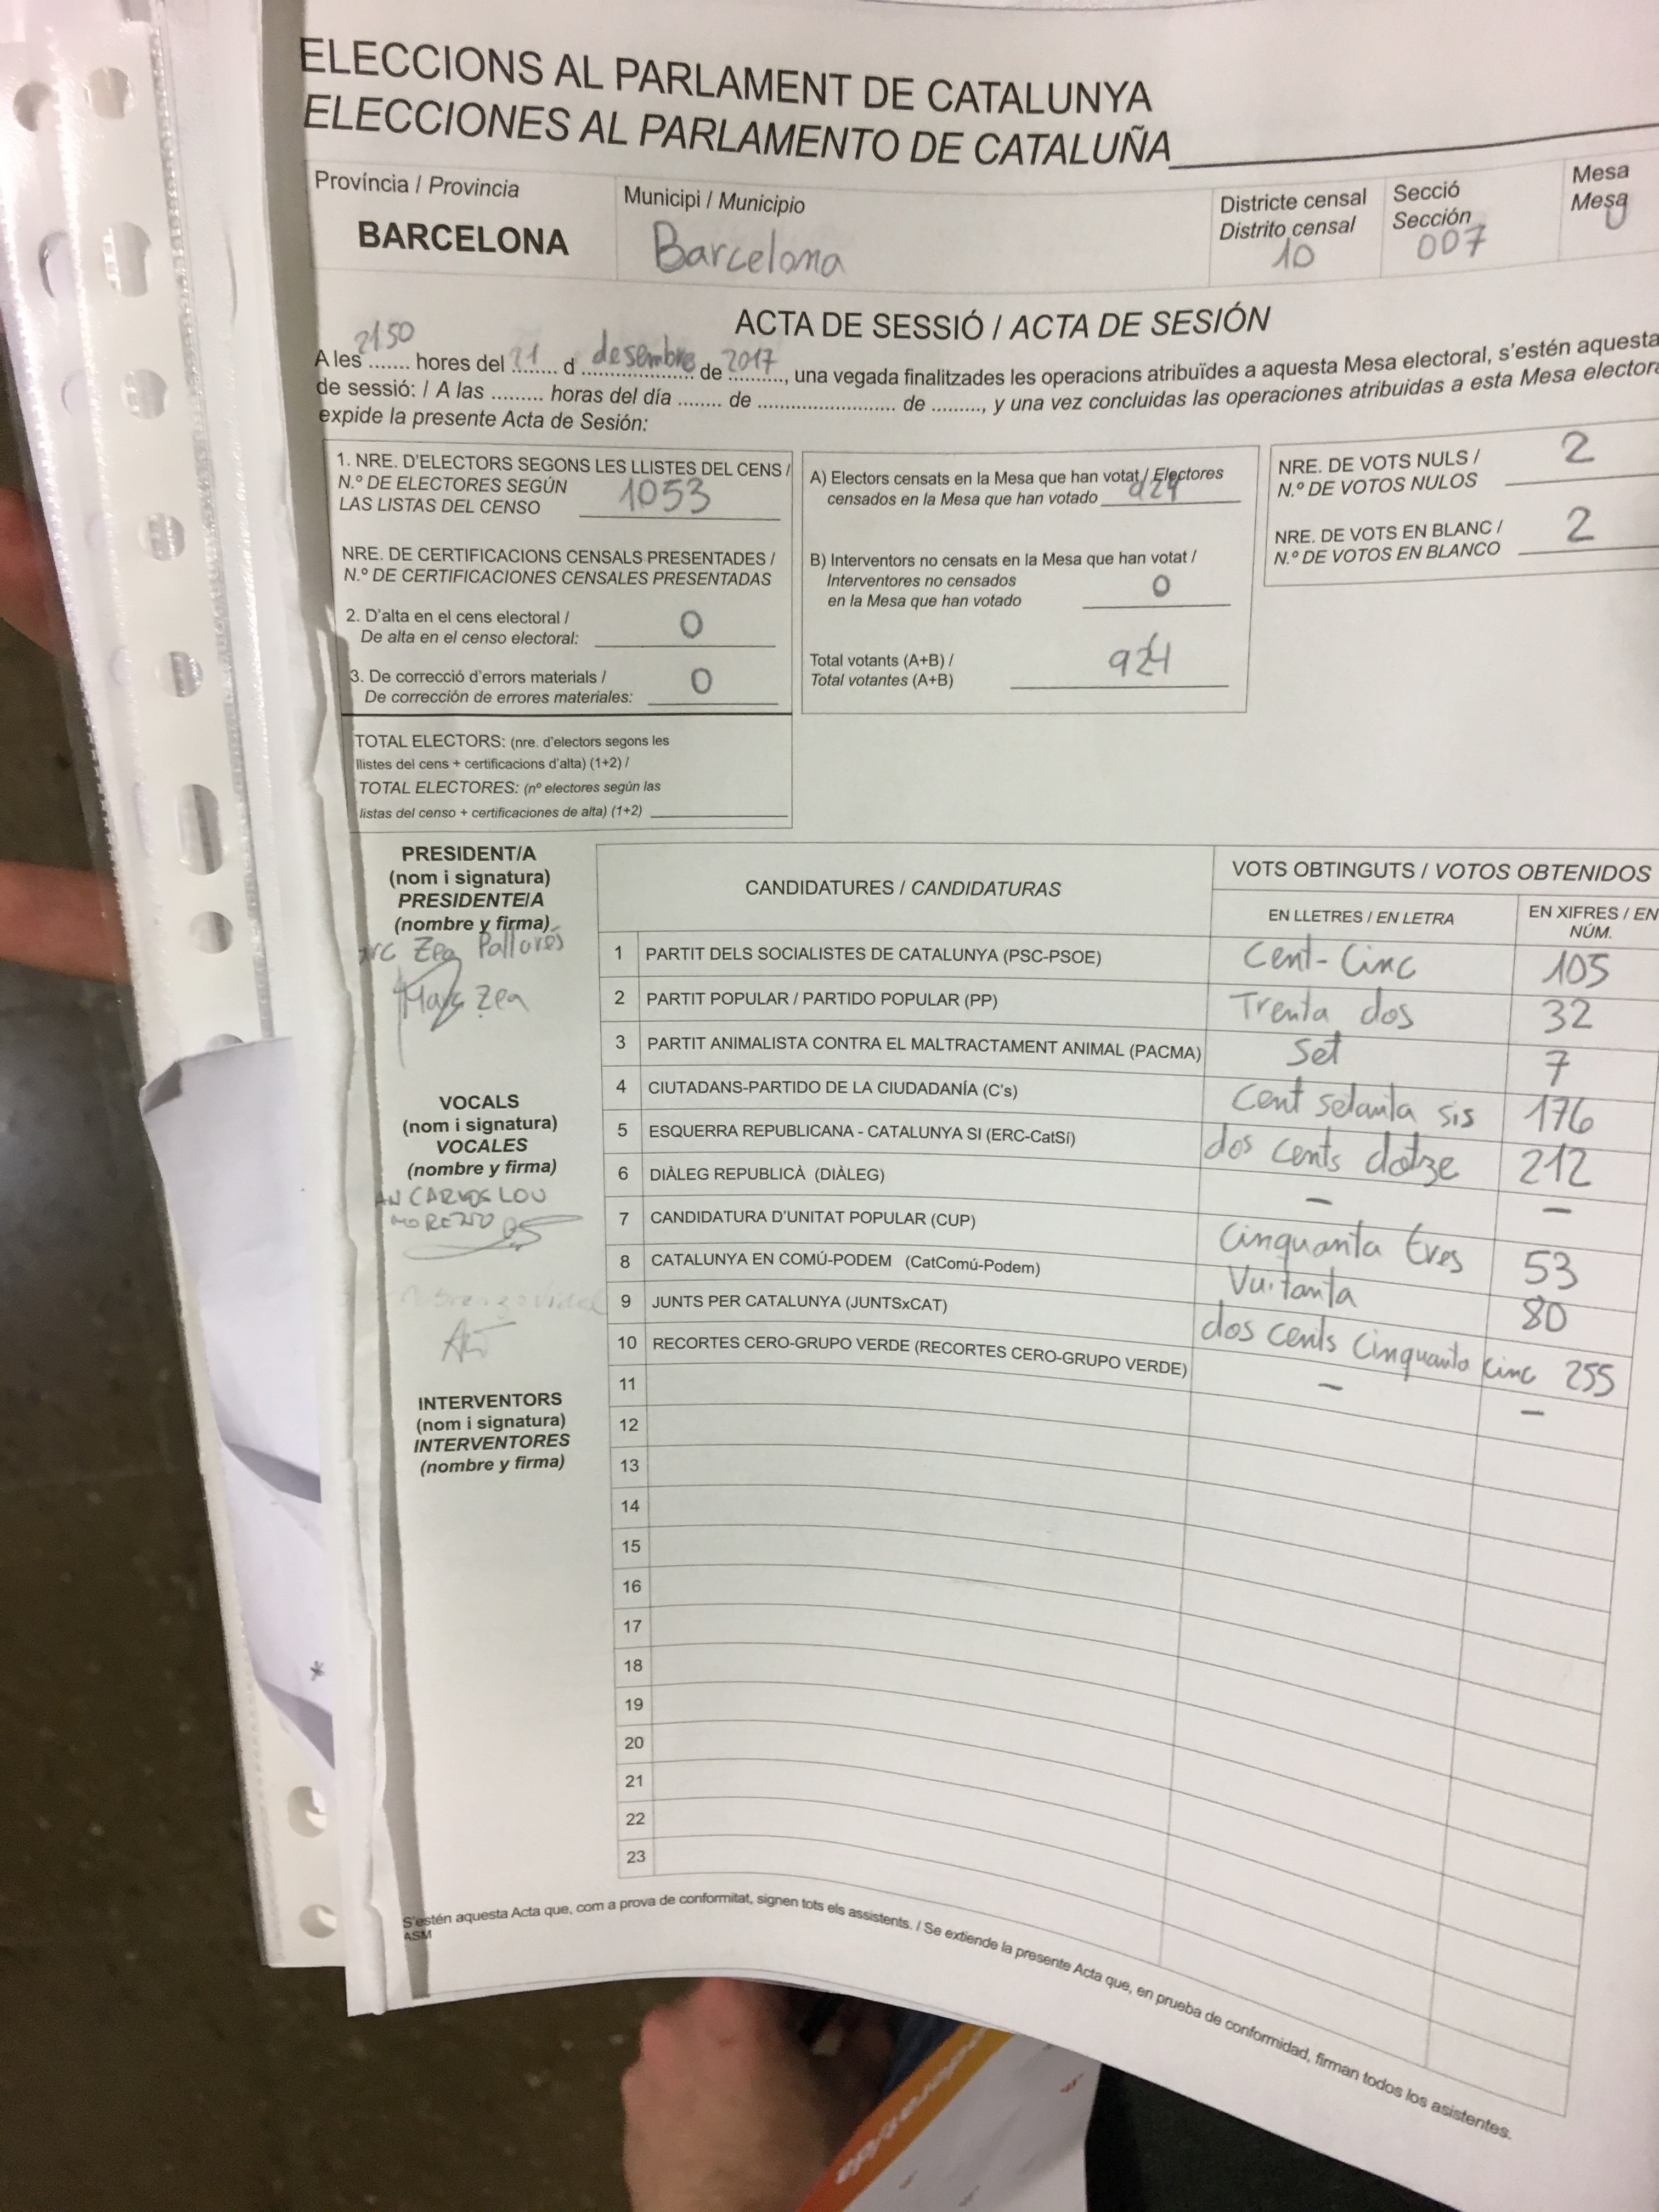 ELECCIONS AL PARLAMENT DE CATALUNYA
ELECCIONES AL PARLAMENTO DE CATALUÑA
Província / Provincia
BARCELONA
Municipi / Municipio
Barcelona
Districte censal
Distrito censal
10
Secció
Sección
007
Mesa
Mesa
U
ACTA DE SESSIÓ / ACTA DE SESIÓN
A les 2150 hores del 21 d desembre de 2017, una vegada finalitzades les operacions atribuïdes a aquesta Mesa electoral, s'estén aquesta
de sessió: / A las ......... horas del día ........ de ........................ de ........., y una vez concluidas las operaciones atribuidas a esta Mesa elector
expide la presente Acta de Sesión:
1. NRE. D'ELECTORS SEGONS LES LLISTES DEL CENS /
N.º DE ELECTORES SEGÚN
LAS LISTAS DEL CENSO 1053
NRE. DE CERTIFICACIONS CENSALS PRESENTADES /
N.º DE CERTIFICACIONES CENSALES PRESENTADAS
2. D'alta en el cens electoral /
De alta en el censo electoral: 0
3. De correcció d'errors materials /
De corrección de errores materiales: 0
TOTAL ELECTORS: (nre. d'electors segons les
llistes del cens + certificacions d'alta) (1+2) /
TOTAL ELECTORES: (nº electores según las
listas del censo + certificaciones de alta) (1+2)
A) Electors censats en la Mesa que han votat / Electores
censados en la Mesa que han votado 924
B) Interventors no censats en la Mesa que han votat /
Interventores no censados
en la Mesa que han votado 0
Total votants (A+B) /
Total votantes (A+B) 924
NRE. DE VOTS NULS /
N.º DE VOTOS NULOS 2
NRE. DE VOTS EN BLANC /
N.º DE VOTOS EN BLANCO 2
PRESIDENT/A
(nom i signatura)
PRESIDENTE/A
(nombre y firma)
rc Zea Pallarés
Marc Zea
VOCALS
(nom i signatura)
VOCALES
(nombre y firma)
AN CARLOS LOU
MORENO
INTERVENTORS
(nom i signatura)
INTERVENTORES
(nombre y firma)
CANDIDATURES / CANDIDATURAS
VOTS OBTINGUTS / VOTOS OBTENIDOS
EN LLETRES / EN LETRA
EN XIFRES / EN
NÚM.
1 PARTIT DELS SOCIALISTES DE CATALUNYA (PSC-PSOE) Cent-Cinc 105
2 PARTIT POPULAR / PARTIDO POPULAR (PP) Trenta dos 32
3 PARTIT ANIMALISTA CONTRA EL MALTRACTAMENT ANIMAL (PACMA) Set 7
4 CIUTADANS-PARTIDO DE LA CIUDADANÍA (C's) Cent setanta sis 176
5 ESQUERRA REPUBLICANA - CATALUNYA SI (ERC-CatSí) dos cents dotze 212
6 DIÀLEG REPUBLICÀ (DIÀLEG) - -
7 CANDIDATURA D'UNITAT POPULAR (CUP) Cinquanta tres 53
8 CATALUNYA EN COMÚ-PODEM (CatComú-Podem) Vuitanta 80
9 JUNTS PER CATALUNYA (JUNTSxCAT) dos cents Cinquanta cinc 255
10 RECORTES CERO-GRUPO VERDE (RECORTES CERO-GRUPO VERDE) - -
11
12
13
14
15
16
17
18
19
20
21
22
23
S'estén aquesta Acta que, com a prova de conformitat, signen tots els assistents. / Se extiende la presente Acta que, en prueba de conformidad, firman todos los asistentes.
ASM